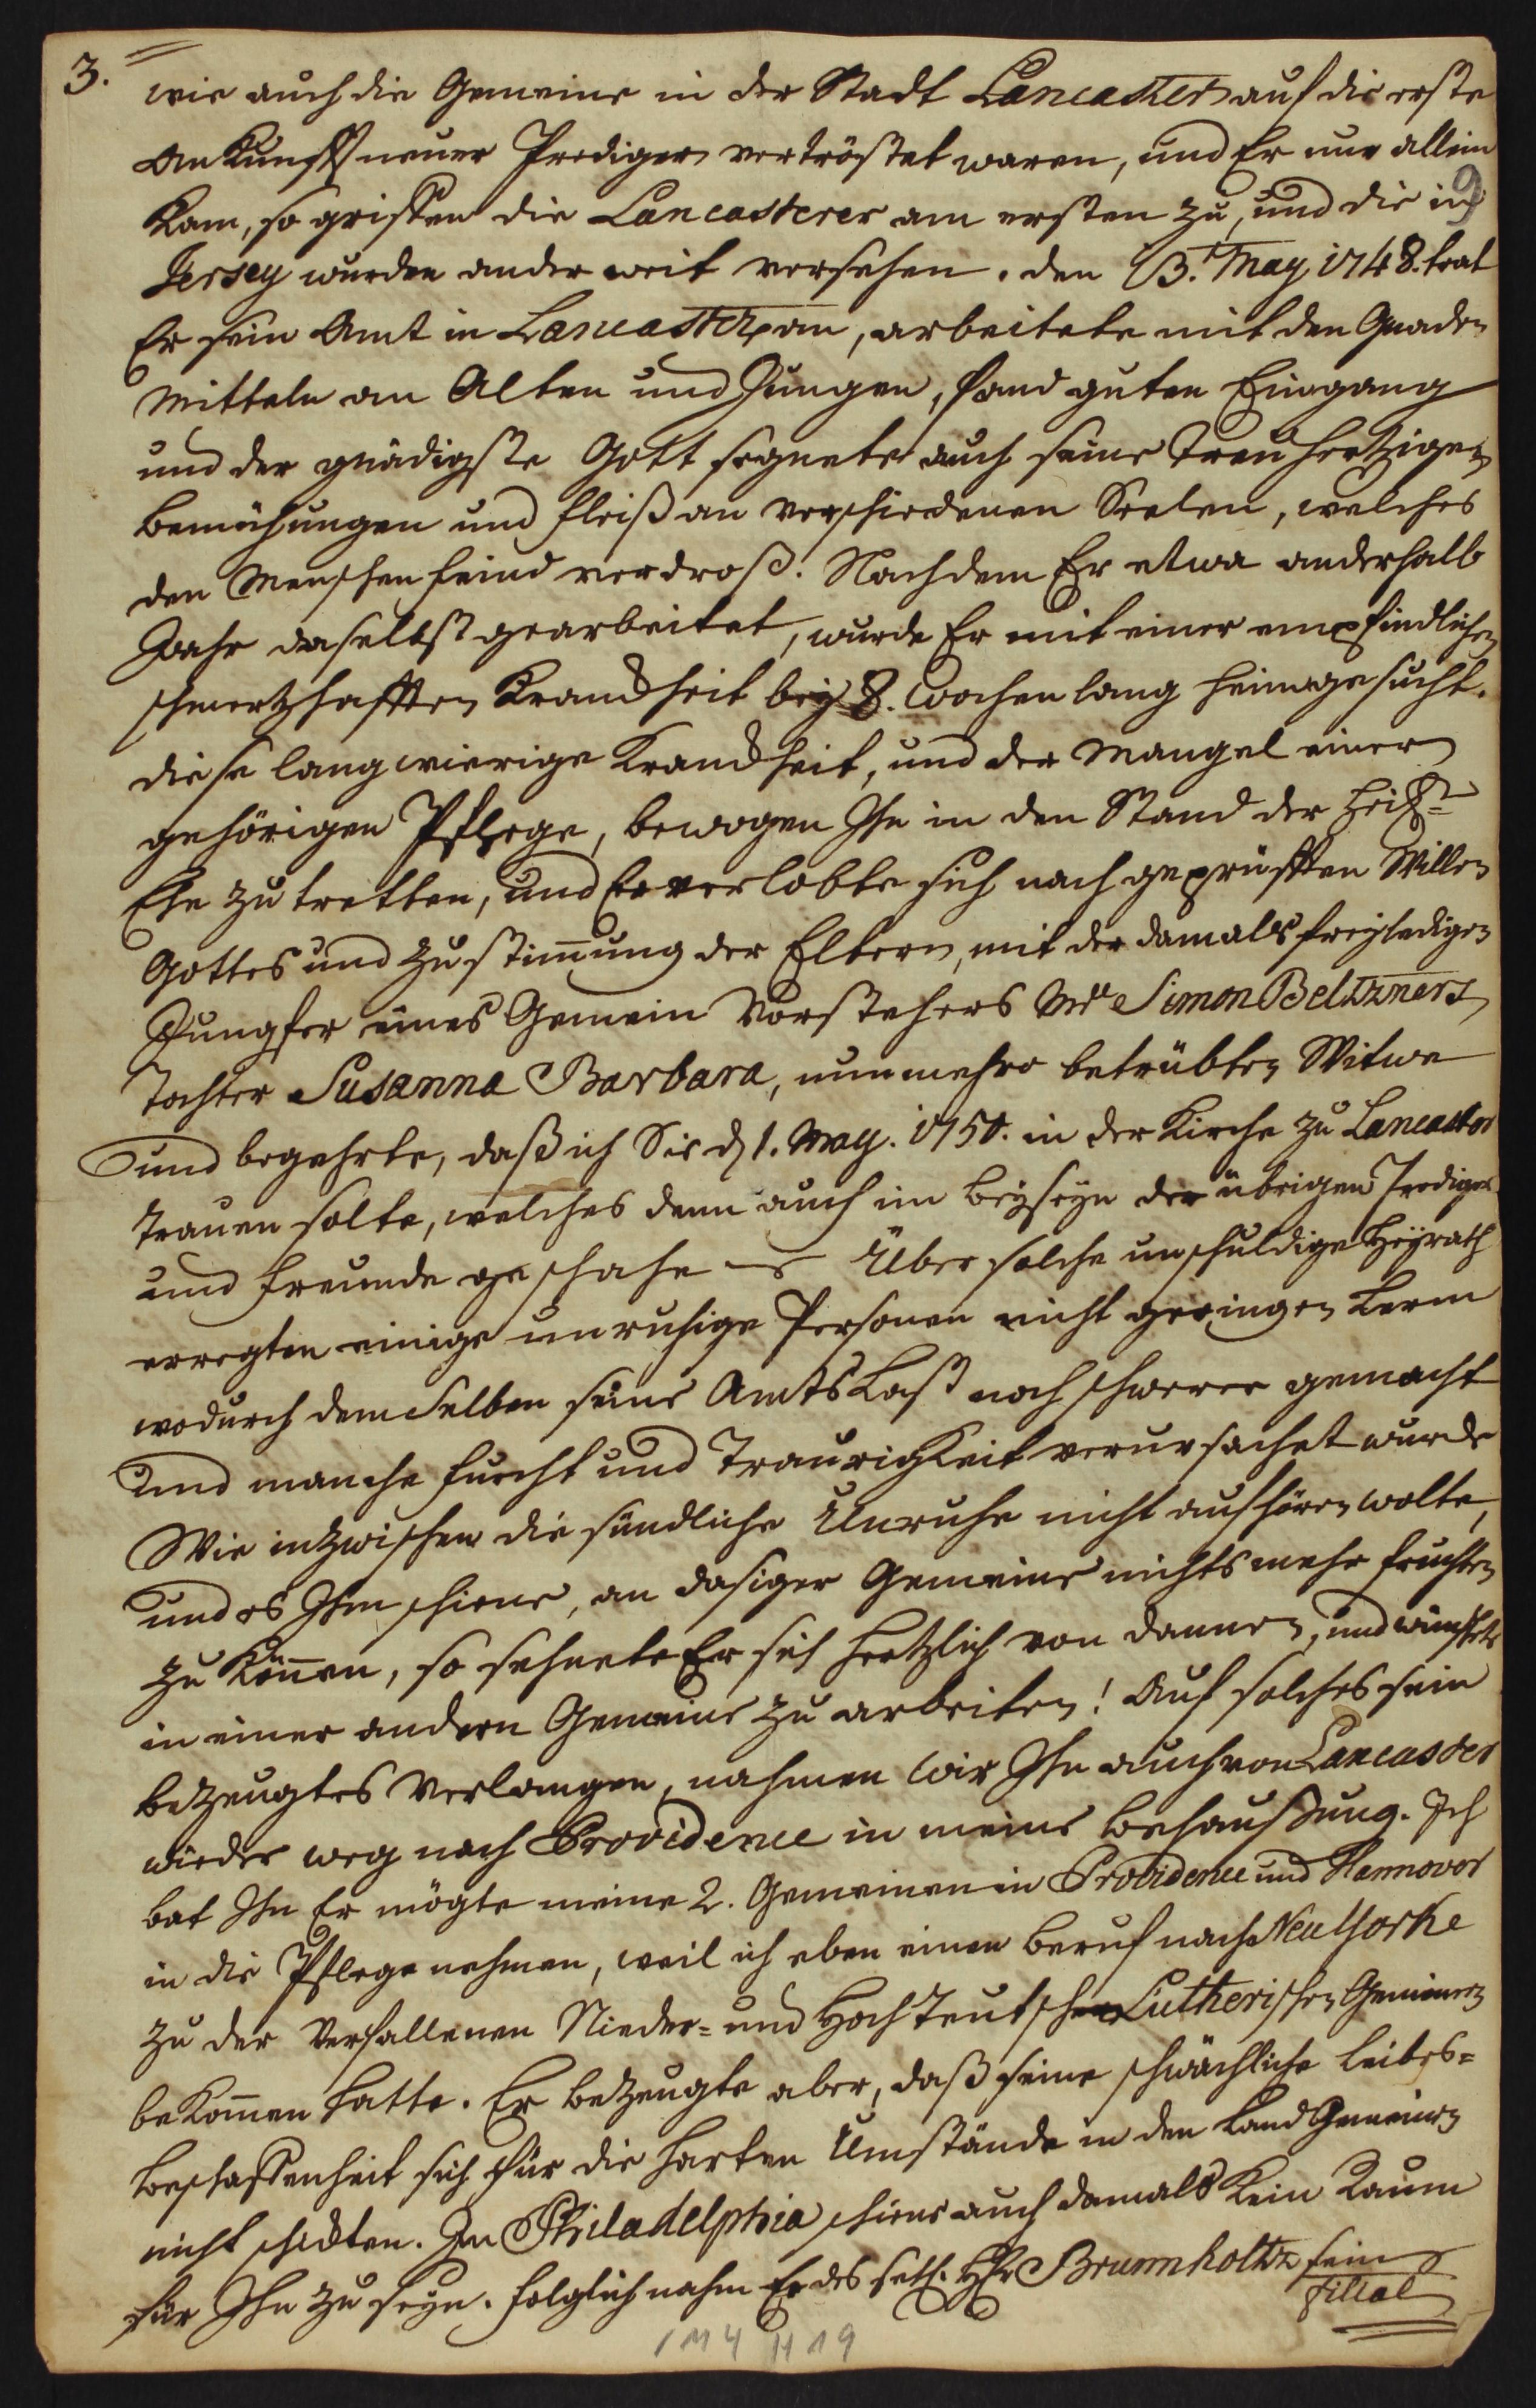 3.
wie auch die Gemeine in der Stadt Lancaster auf die erste
Ankunfft neuer Prediger vertröstet waren, und Er nur allein
kam, so griffen die Lancasterer am ersten zu, und die in
9
Jersey wurden anderweit versehen. den 13. May 1748. trat
Er sein Amt in Lancaster an, arbeitete mit den Gnaden
Mitteln an Alten und Jungen, fand guten Eingang
und der gnädigste Gott segnete auch seine treuhertzigen
Bemühungen und fleiß an verschiedenen Seelen, welches
den Menschenfeind verdroß. Nachdem Er etwa anderhalb
Jahr daselbst gearbeitet, wurde Er mit einer empfindlichen
schmertzhafften Kranckheit bey 8. Wochen lang heimgesucht.
diese langwierige Kranckheit, und der Mangel einer
gehörigen Pflege, bewogen Ihn in den Stand der
Ehe zu tretten, und Er verlobte sich nach geprüfften Willen
Gottes und Zustim̄ung der Eltern, mit der damals freyledigen
Jungfer eines Gemein Vorstehers Mr Simon Beltzners
Tochter Susanna Barbara, nunmehro betrübten Witwe
und begehrte, daß ich Sie d 1. May. 1750. in der Kirche zu Lancaster
trauen solte, welches denn auch im beyseyn der übrigen Prediger
und freunde geschahe Über solche unschuldige Heyrath
erregten einige unruhige Personen nicht geringen Lerm
wodurch demselben seine Amts Last noch schwerer gemacht
und manche furcht und Traurigkeit verursachet wurde
Wie inzwischen die sündliche Unruhe nicht aufhören wolte,
und es Ihm schiene, an dasiger Gemeine nichts mehr fruchten
zu kön̄en, so sehnete Er sich hertzlich von dannen, und wünschte
in einer andern Gemeine zu arbeiten! Auf solches sein
bezeugtes Verlangen, nahmen wir Ihn auch von Lancaster
wieder weg nach Providence in meine Behaussung. Ich
bat Ihn Er mögte meine 2. Gemeinen in Providence und Hannover
in die Pflege nehmen, weil ich eben einen Beruf nach Neu Yorke
zu der Verfallenen Nieder- und Hoch Teutschen Lutherischen Gemeinen
bekom̄en hatte. Er bezeugte aber, daß seine schwächliche Leibes-
beschaffenheit sich für die harten Umstände in den Land Gemeinen
nicht schickten. In Philadelphia schiene auch damals kein Raum
für Ihn zu seyn. folglich nahm Er des sel. H Brunnholtz seine
Filial
1 M 4 H 19